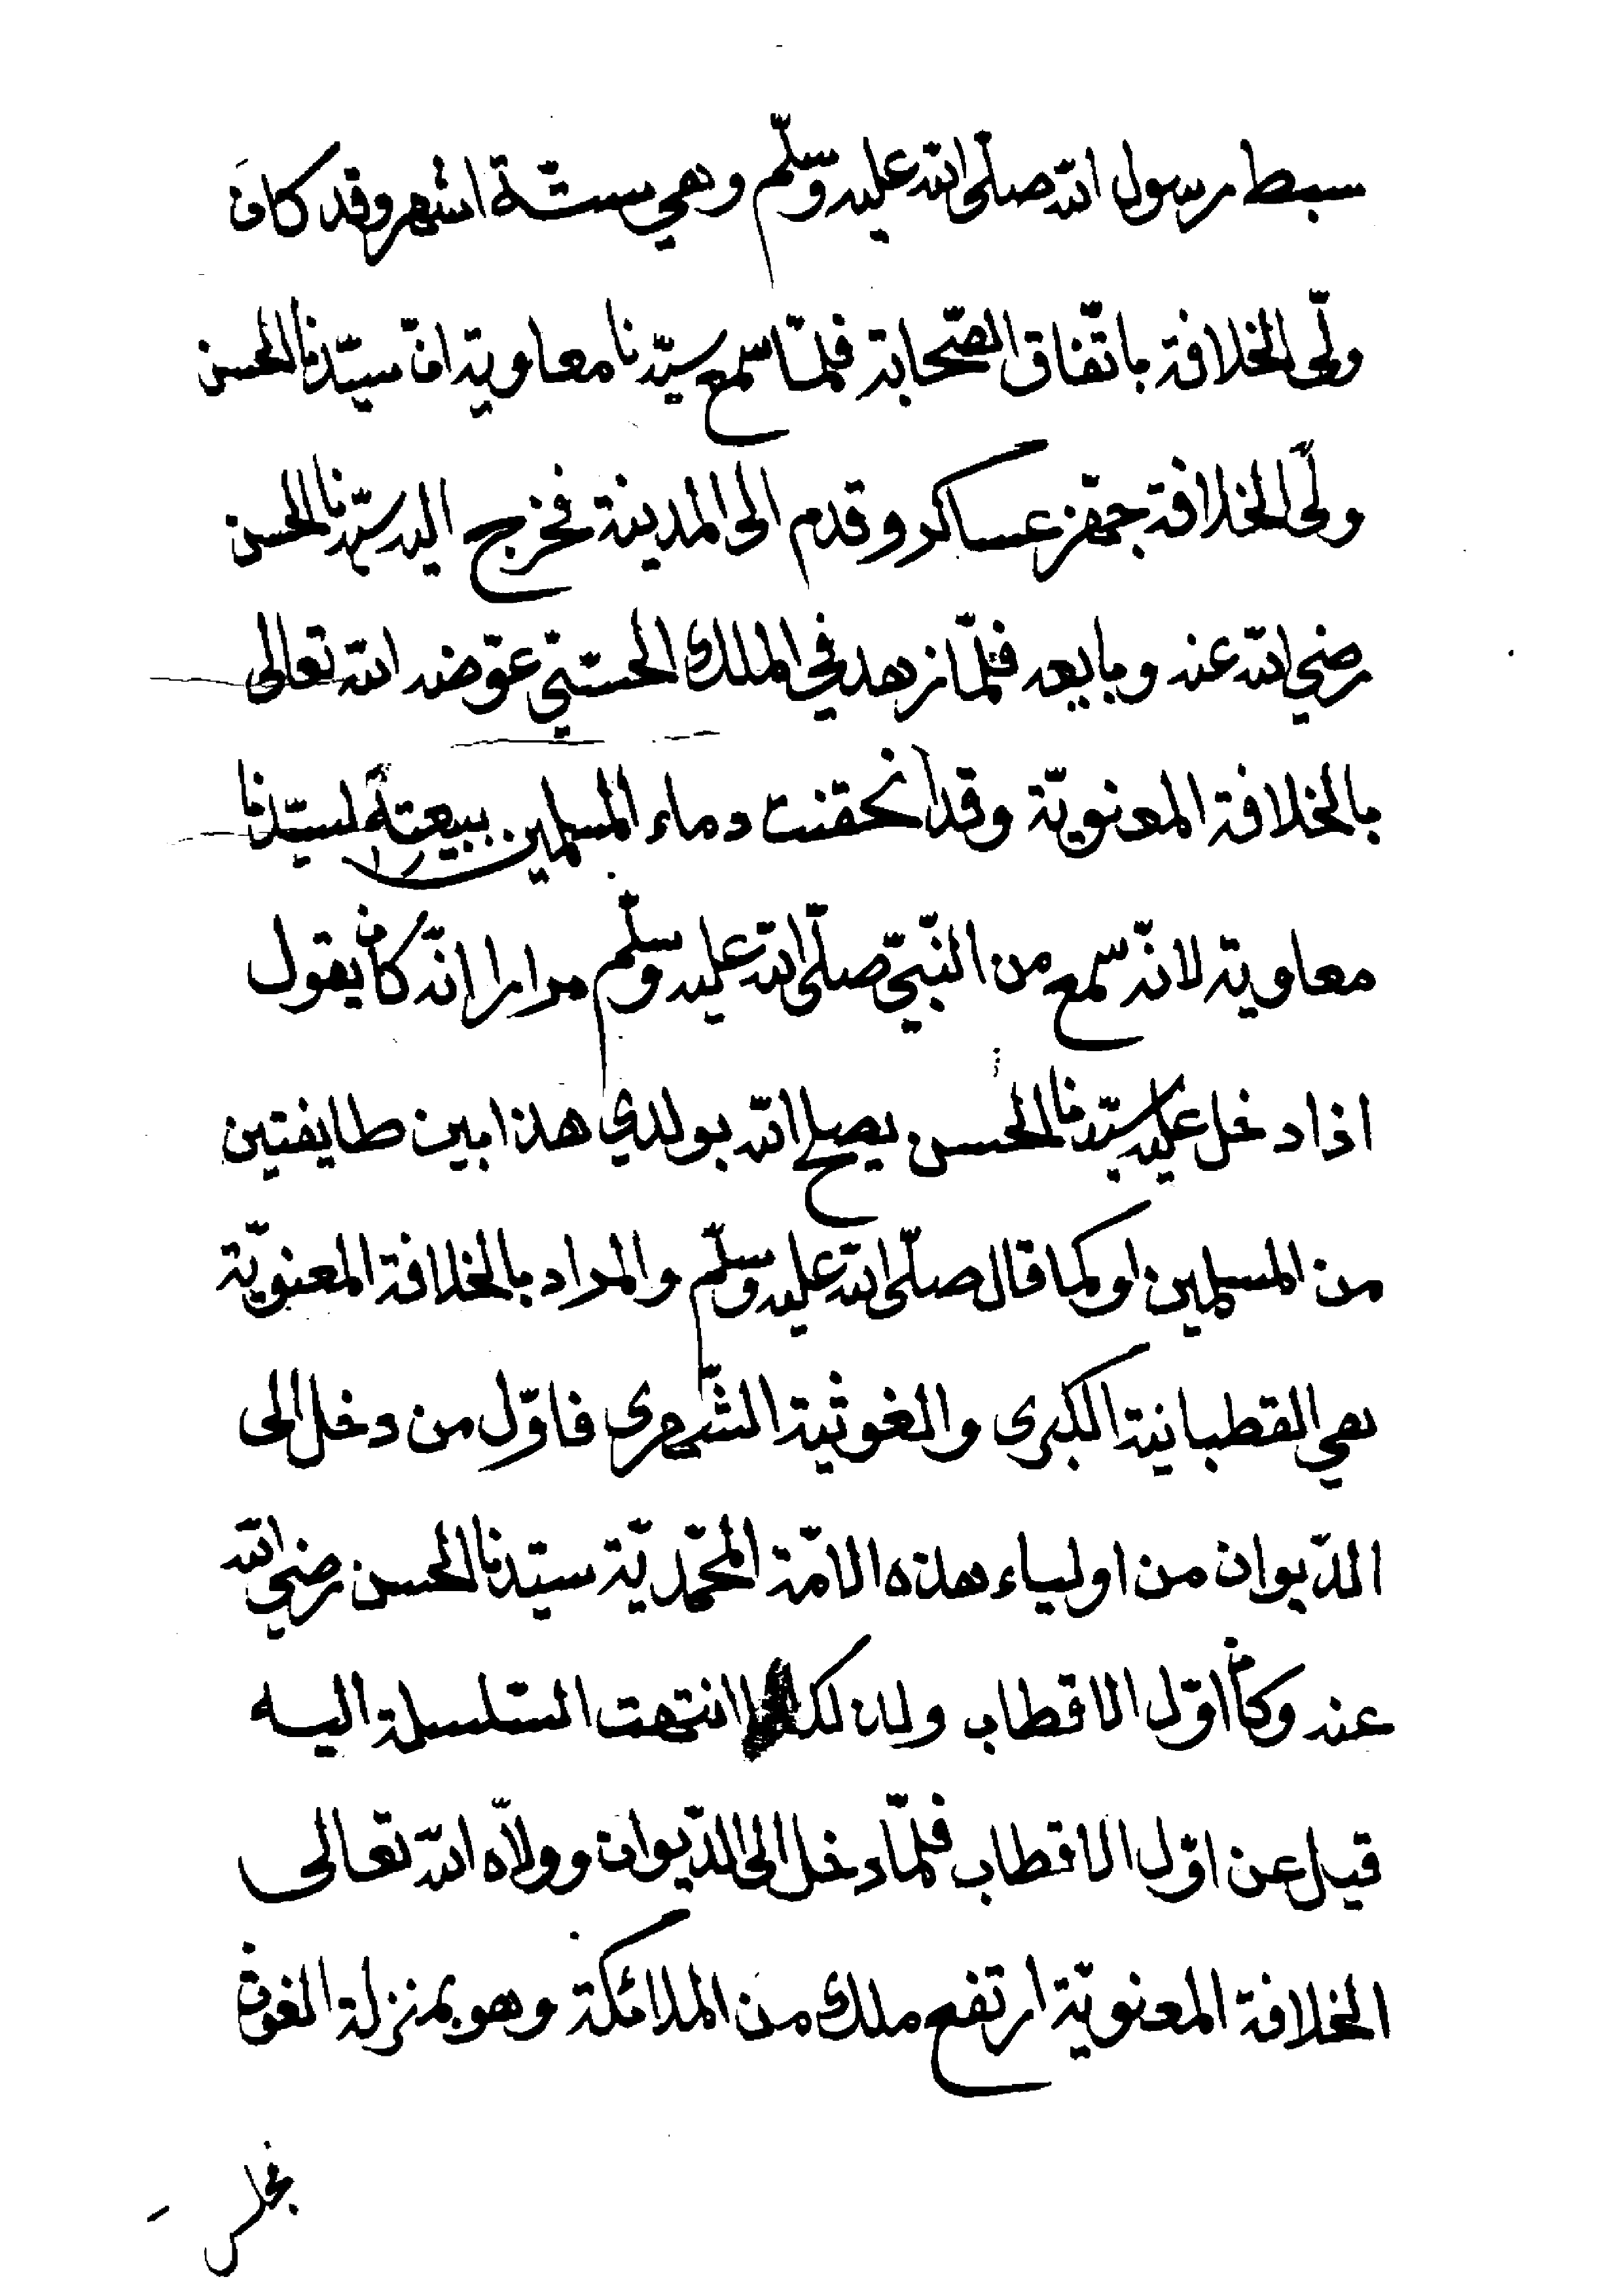 سبط رسول الله صلّى الله عليه وسلّم وهي ستّة اشهر وقد كان
ولّى الخلافة باتّفاق الصّحابة فلمّا سمع سيّدنا معاوية انّ سيّدنا الحسن
ولّى الخلافة جهّز عساكر وقدم الى المدينة فخرج اليه سيّدنا الحسن
رضي الله عنه وبايعه فلمّا زهد في الملك الحسّي عوّضه الله تعالى
بالخلافة المعنويّة وقد انحقنت دماء المسلمين ببيعته لسيّدنا
معاوية لانّه سمع من النّبيّ صلّى الله عليه وسلّم مرارا انّه كان يقول
اذا دخل عليه سيّدنا الحسن يصلح الله بولدي هذا بين طايفتين
من المسلمين او كما قال صلّى الله عليه وسلّم والمراد بالخلافة المعنويّة
هي القطبانية الكبرى والغوثية الشّهرى فاوّل من دخل الى
الدّيوان من اولياء هذه الامّة المحمّديّة سيّدنا الحسن رضي الله
عنه وكان اوّل الاقطاب ولذلك انتهت السّلسلة اليه
قيل عن اوّل الاقطاب فلمّا دخل الى الدّيوان وولاّه الله تعالى
الخلافة المعنويّة ارتفع ملك من الملائكة وهو بمنزلة الغوث
فجلس